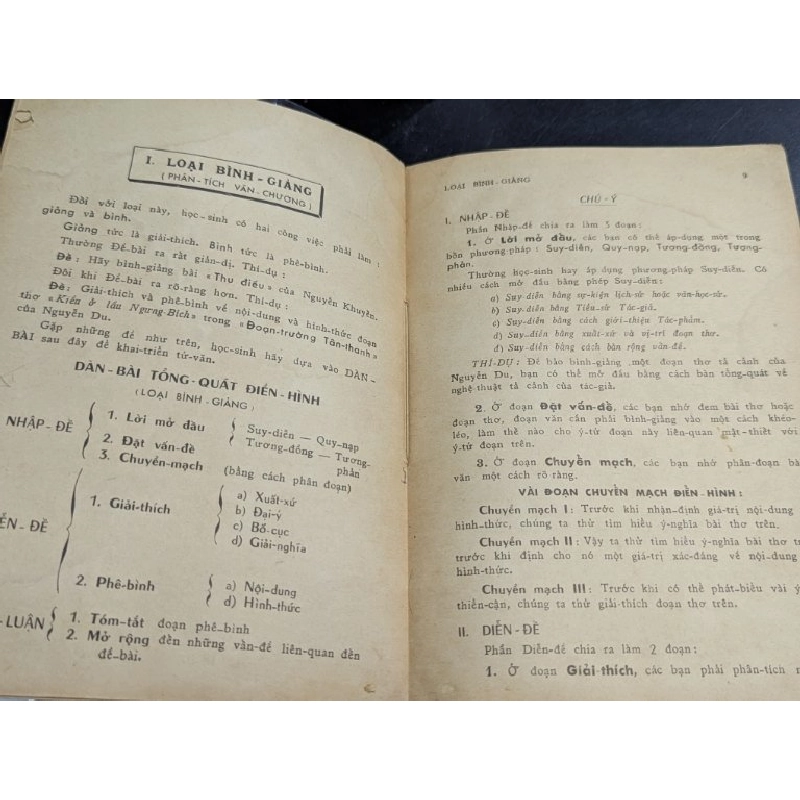 I. LOẠI BÌNH-GIẢNG
(PHÂN-TÍCH VĂN-CHƯƠNG)
Đối với loại này, học-sinh có hai công việc phải làm :
giảng và bình.
Giảng tức là giải-thích. Bình tức là phê-bình.
Thường Đề-bài ra rất giản-dị. Thí-dụ :
Đề : Hãy bình-giảng bài «Thu điếu» của Nguyễn Khuyến.
Đôi khi Đề-bài ra rõ-ràng hơn. Thí-dụ :
Đề : Giải-thích và phê-bình về nội-dung và hình-thức đoạn
thơ «Kiều ở lầu Ngưng-Bích» trong «Đoạn-trường Tân-thanh»
của Nguyễn Du.
Gặp những đề như trên, học-sinh hãy dựa vào DÀN-
BÀI sau đây để khai-triển tứ-văn.
DÀN-BÀI TỔNG-QUÁT ĐIỂN-HÌNH
(LOẠI BÌNH-GIẢNG)
NHẬP-ĐỀ
1. Lời mở đầu
Suy-diễn — Quy-nạp
Tương-đồng — Tương-
phản
2. Đặt vấn-đề
3. Chuyển-mạch (bằng cách phân đoạn)
ỄN-ĐỀ
1. Giải-thích
a) Xuất-xứ
b) Đại-ý
c) Bố-cục
d) Giải-nghĩa
2. Phê-bình
a) Nội-dung
d) Hình-thức
-LUẬN
1. Tóm-tắt đoạn phê-bình
2. Mở rộng đến những vấn-đề liên-quan đến
đề-bài.
LOẠI BÌNH-GIẢNG 9
CHÚ-Ý
I. NHẬP-ĐỀ
Phần Nhập-đề chia ra làm 3 đoạn :
1. Ở Lời mở đầu, các bạn có thể áp-dụng một trong
bốn phương-pháp : Suy-diễn, Quy-nạp, Tương-đồng, Tương-
phản.
Thường học-sinh hay áp dụng phương-pháp Suy-diễn. Có
nhiều cách mở đầu bằng phép Suy-diễn :
a) Suy-diễn bằng sự-kiện lịch-sử hoặc văn-học-sử.
b) Suy-diễn bằng Tiểu-sử Tác-giả.
c) Suy-diễn bằng cách giới-thiệu Tác-phẩm.
d) Suy-diễn bằng xuất-xứ và vị-trí đoạn thơ.
d) Suy-diễn bằng cách bàn rộng vấn-đề.
THÍ-DỤ : Đề bảo bình-giảng một đoạn thơ tả cảnh của
Nguyễn Du, bạn có thể mở đầu bằng cách bàn tổng-quát về
nghệ-thuật tả cảnh của tác-giả.
2. Ở đoạn Đặt vấn-đề, các bạn nhớ đem bài thơ hoặc
đoạn thơ, đoạn văn cần phải bình-giảng vào một cách khéo-
léo, làm thế nào cho ý-tứ đoạn này liên-quan mật-thiết với
ý-tứ đoạn trên.
3. Ở đoạn Chuyển mạch, các bạn nhớ phân-đoạn bà
văn một cách rõ-ràng.
VÀI ĐOẠN CHUYỂN MẠCH ĐIỂN-HÌNH :
Chuyển mạch I : Trước khi nhận-định giá-trị nội-dung
hình-thức, chúng ta thử tìm hiểu ý-nghĩa bài thơ trên.
Chuyển mạch II : Vậy ta thử tìm hiểu ý-nghĩa bài thơ tr
trước khi định cho nó một giá-trị xác-đáng về nội-dung
hình-thức.
Chuyển mạch III : Trước khi có thể phát-biểu vài ý
thiển-cận, chúng ta thử giải-thích đoạn thơ trên.
II. DIỄN-ĐỀ
Phần Diễn-đề chia ra làm 2 đoạn :
1. Ở đoạn Giải-thích, các bạn phải phân-tích